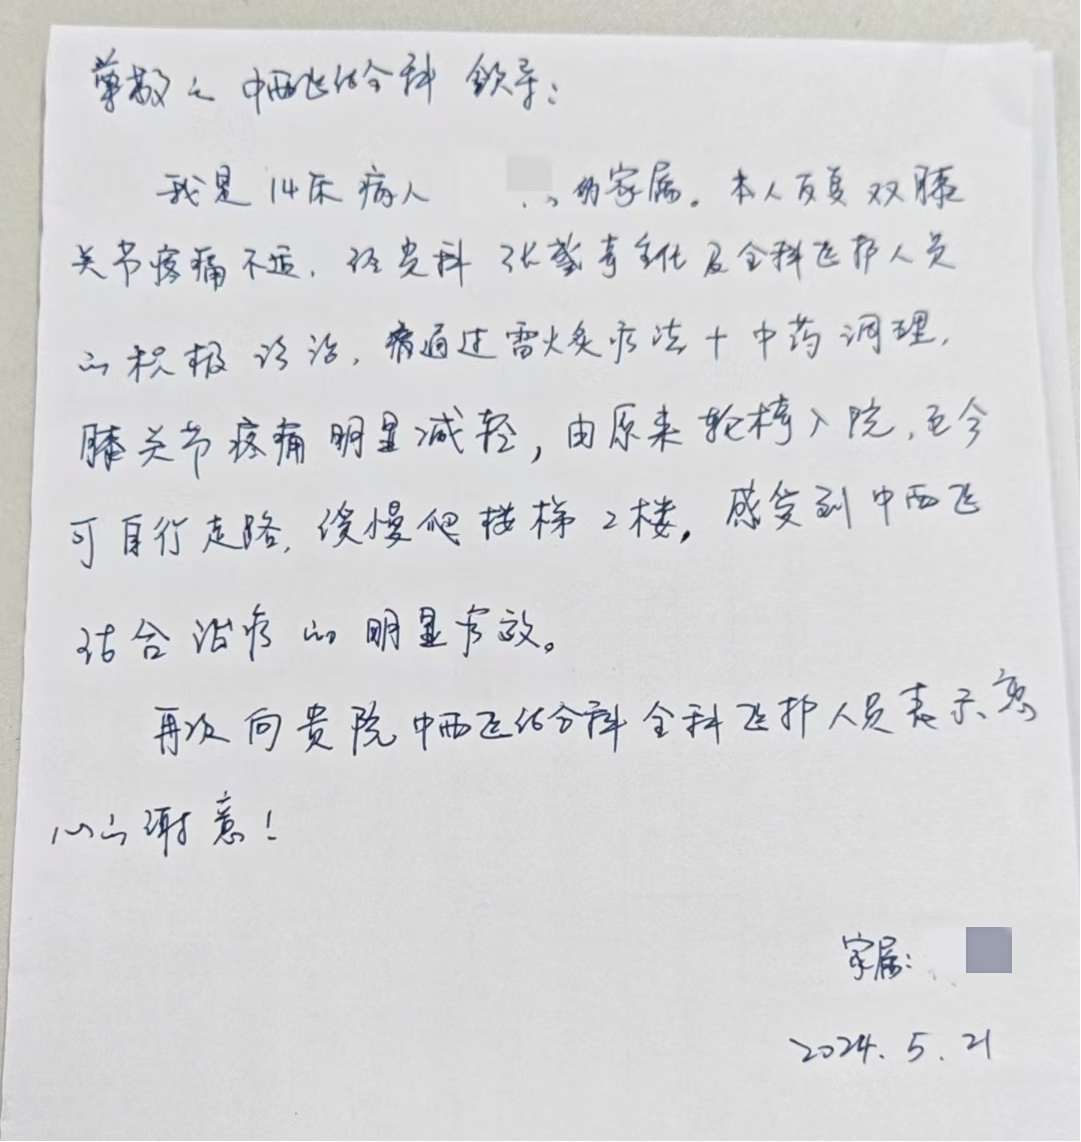 尊敬之中西医结合科领导：
我是14床病人 的家属。本人反复双膝
关节疼痛不适，经贵科张 主任及全科医护人员
的积极诊治，通过雷火灸疗法+中药调理，
膝关节疼痛明显减轻，由原来轮椅入院，至今
可自行走路，缓慢爬楼梯2楼，感受到中西医
结合治疗的明显疗效。
再次向贵院中西医结合科全科医护人员表示衷
心的谢意！
家属：
2024.5.21